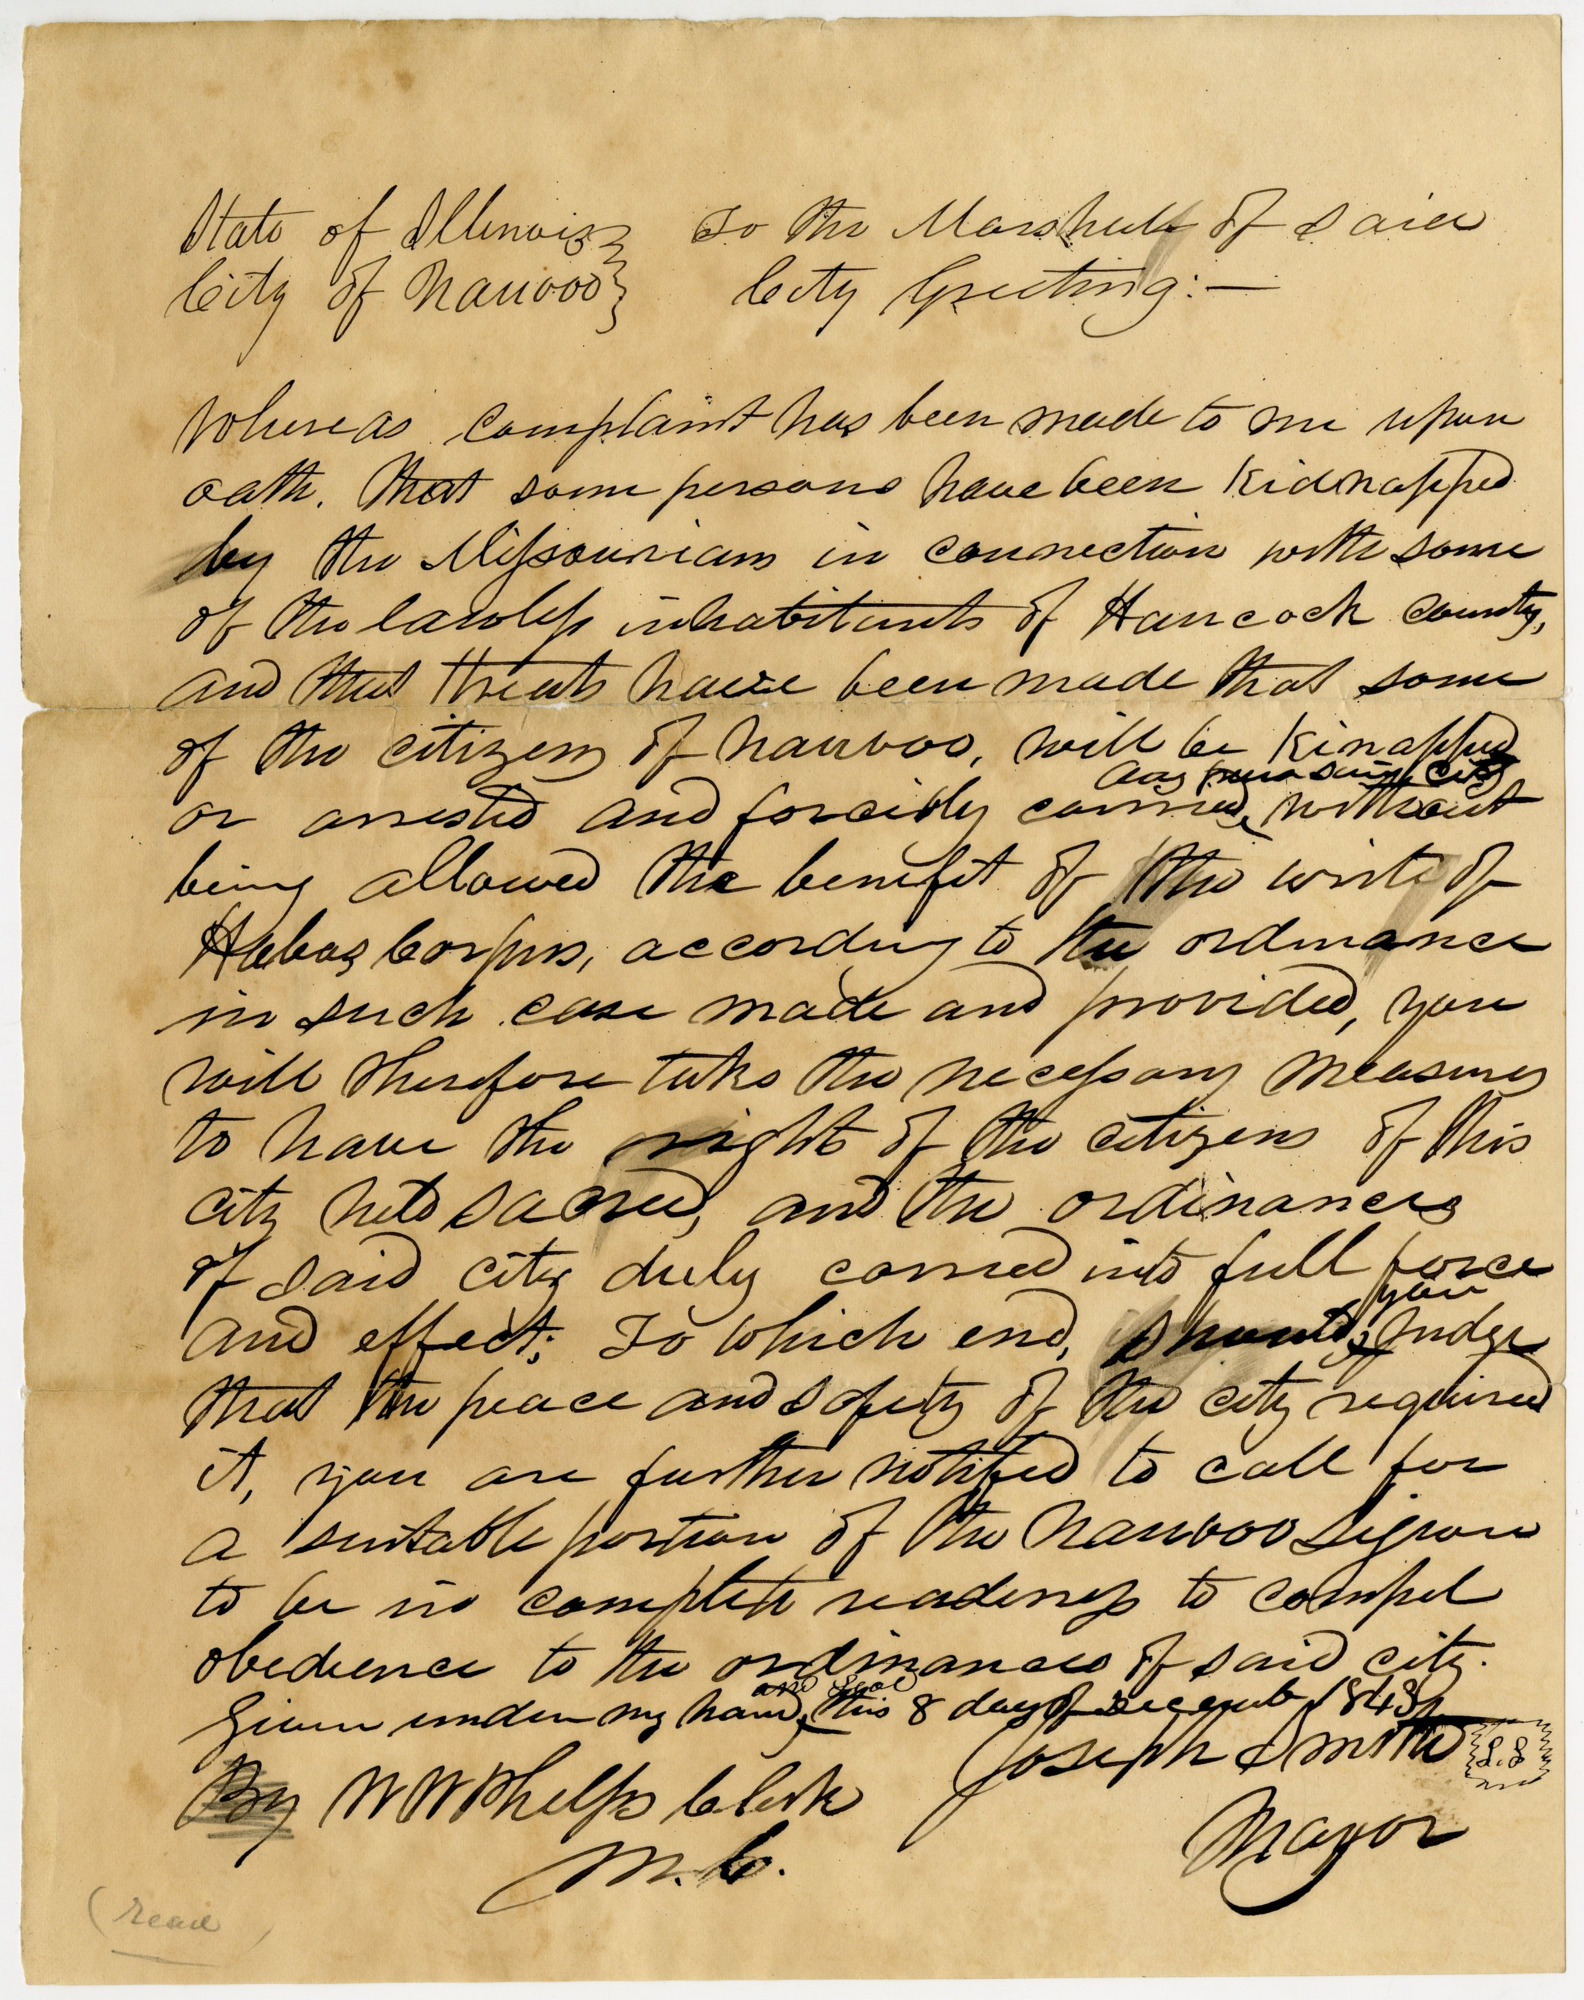 State of Illinois } To the Marshall of said
City of Nauvoo } City Greeting:—
Whereas complaint has been made to me upon
oath, that some persons have been kidnapped
by the Missourians in connection with some
of the lawless inhabitants of Hancock county,
and that threats have been made that some
of the citizens of Nauvoo, will be kinapped
away from said city
or arrested and forcibly carried, without
being allowed the benefit of the writ of
Habeas Corpus, according to the ordinance
in such case made and provided, you
will therefore take the necessary measures
to have the right of the citizens of this
city held sacred, and the ordinances
of said city duly carried into full force
you
and effect; To which end, should judge
that the peace and safety of the city required
it, you are further notified to call for
a suitable portion of the Nauvoo Legion
to be in complete readiness to compel
obedience to the ordinances of said city.
and seal
Given under my hand, this 8 day of December 1843,
Joseph Smith L.S
By W W Phelps Clerk
Mayor
M. C.
(read)